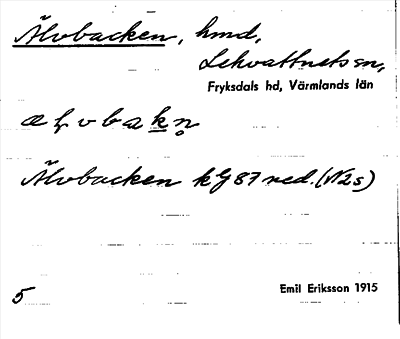 Älvbacken, hmd,
Lekvattnets sn,
Fryksdals hd, Värmlands län
Älvbacken kG 87 red. (N2s)
5
Emil Eriksson 1915